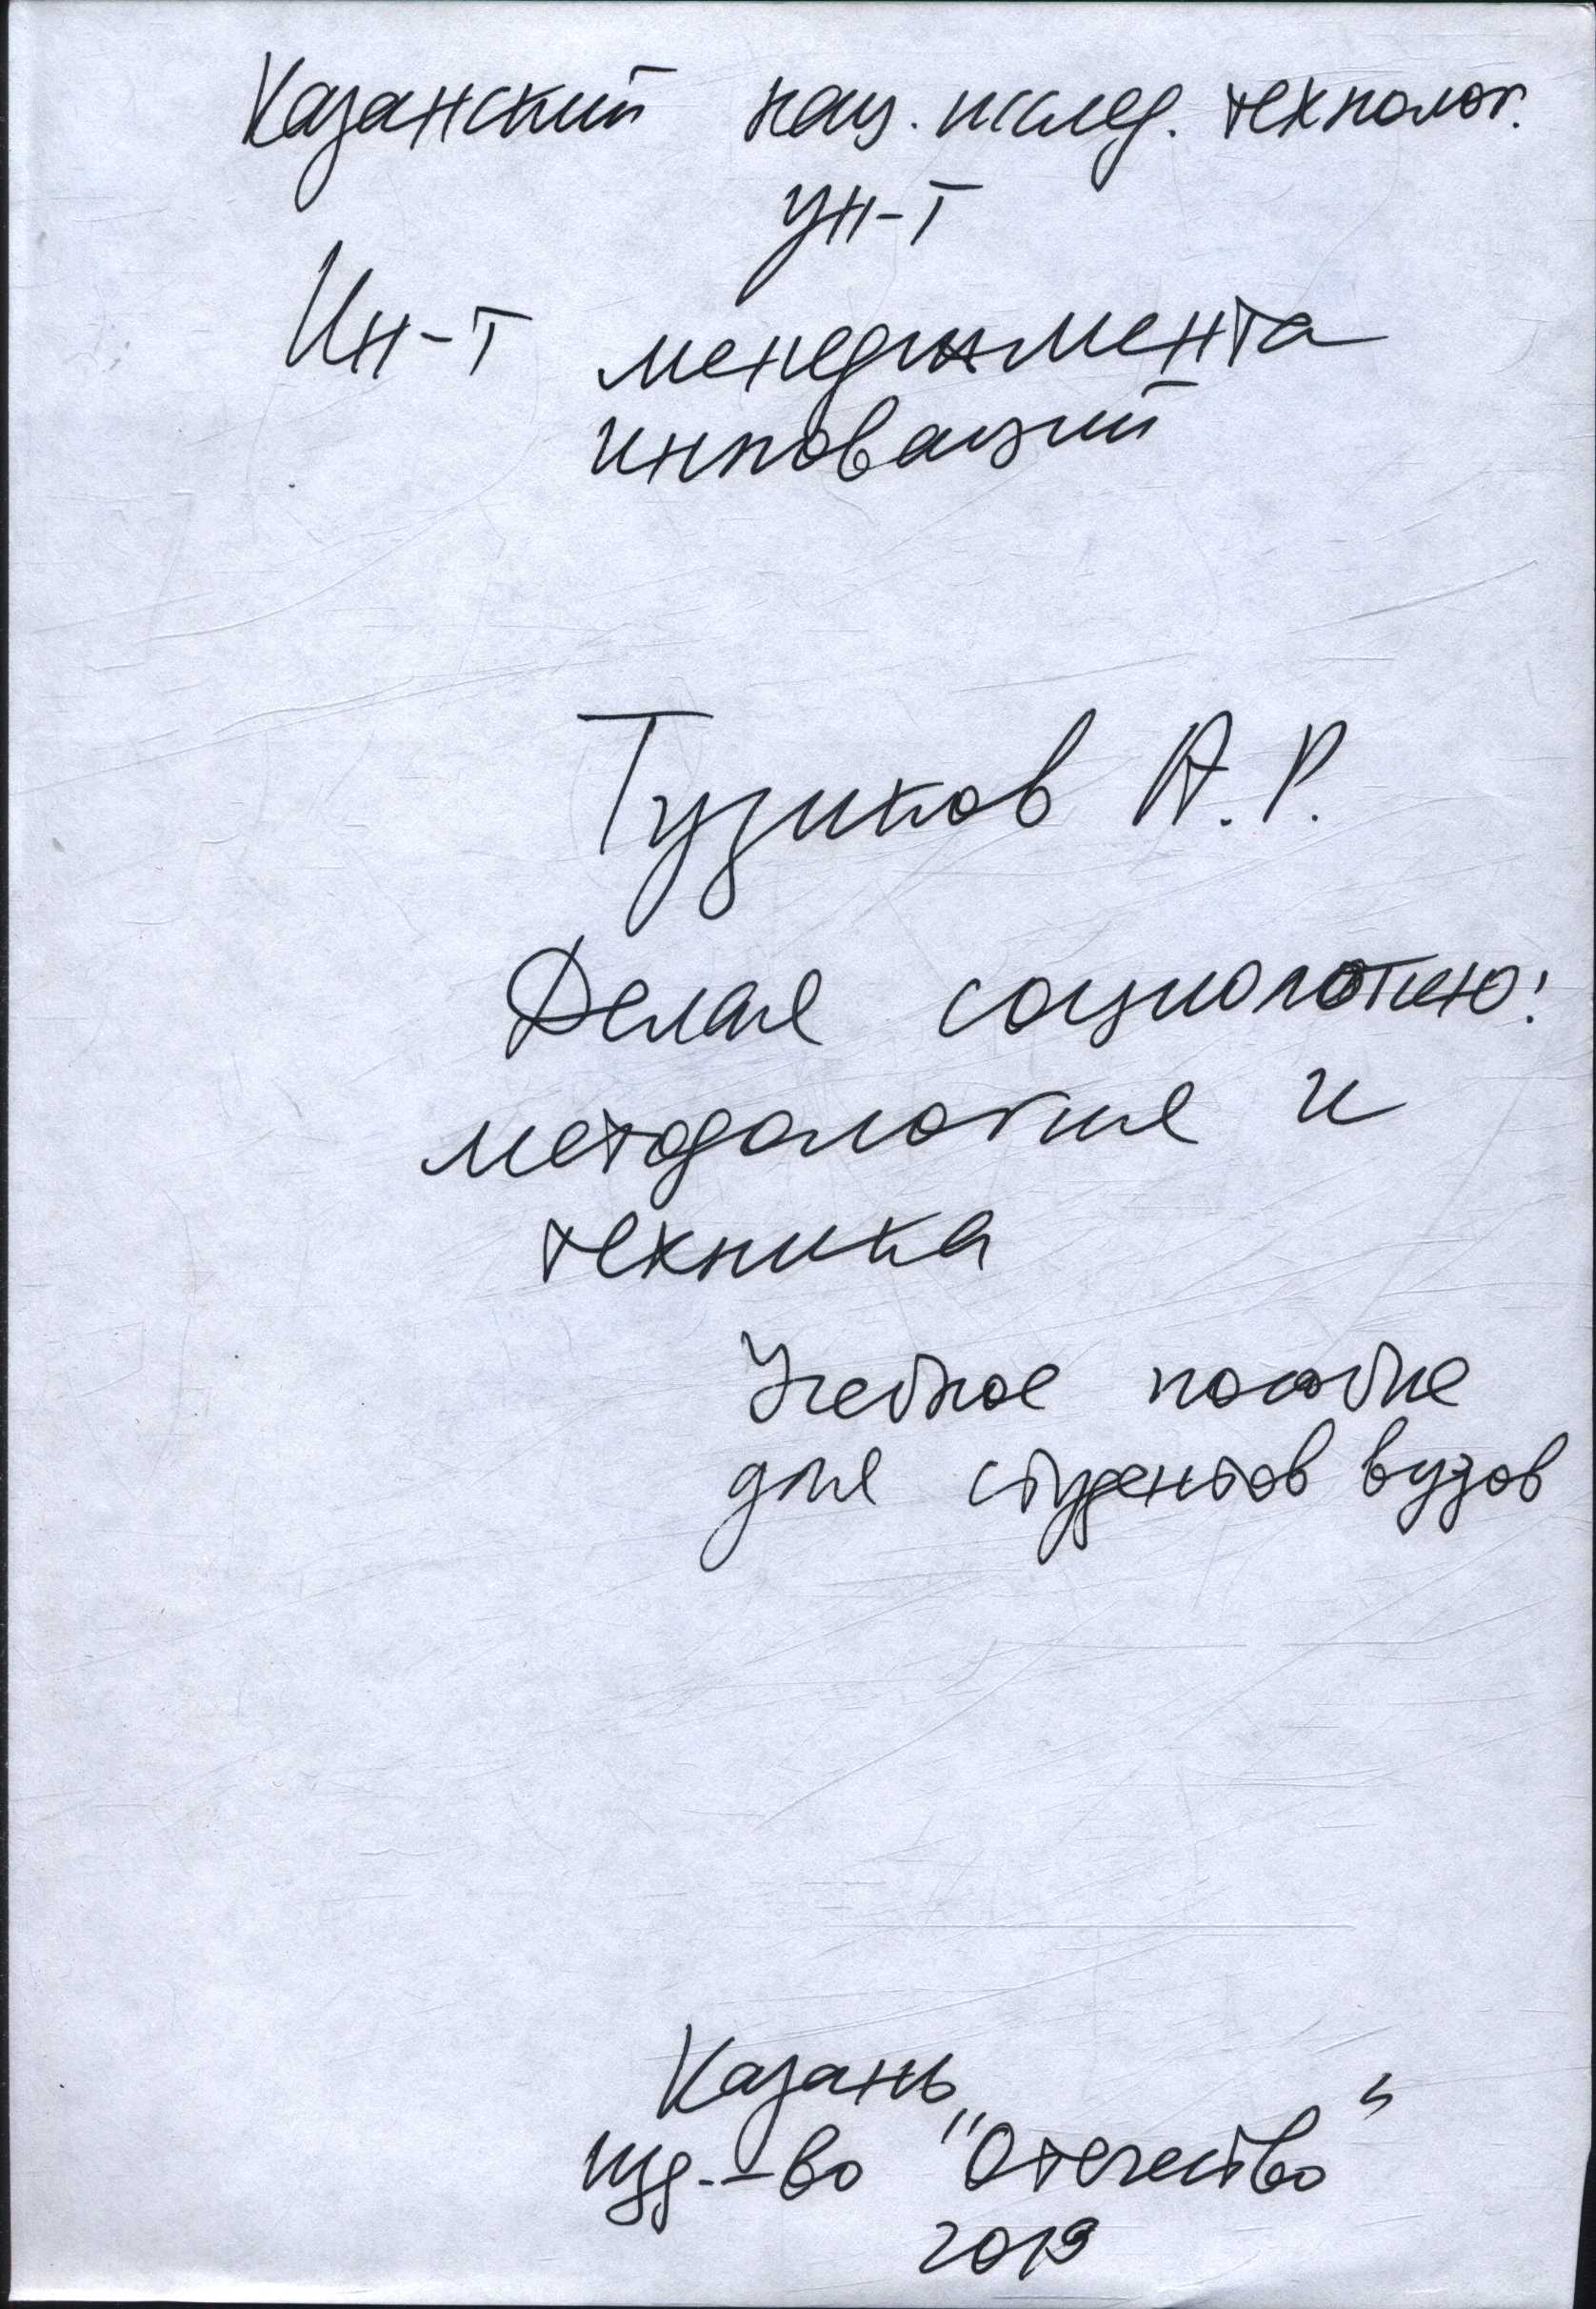 Казанский нац. исслед. технолог.
ун-т
Ин-т менеджмента
инноваций
Тузиков А.Р.
Делая социологию:
методология и
техника
Учебное пособие
для студентов вузов
Казань
Изд.-во "Отечество"
2019